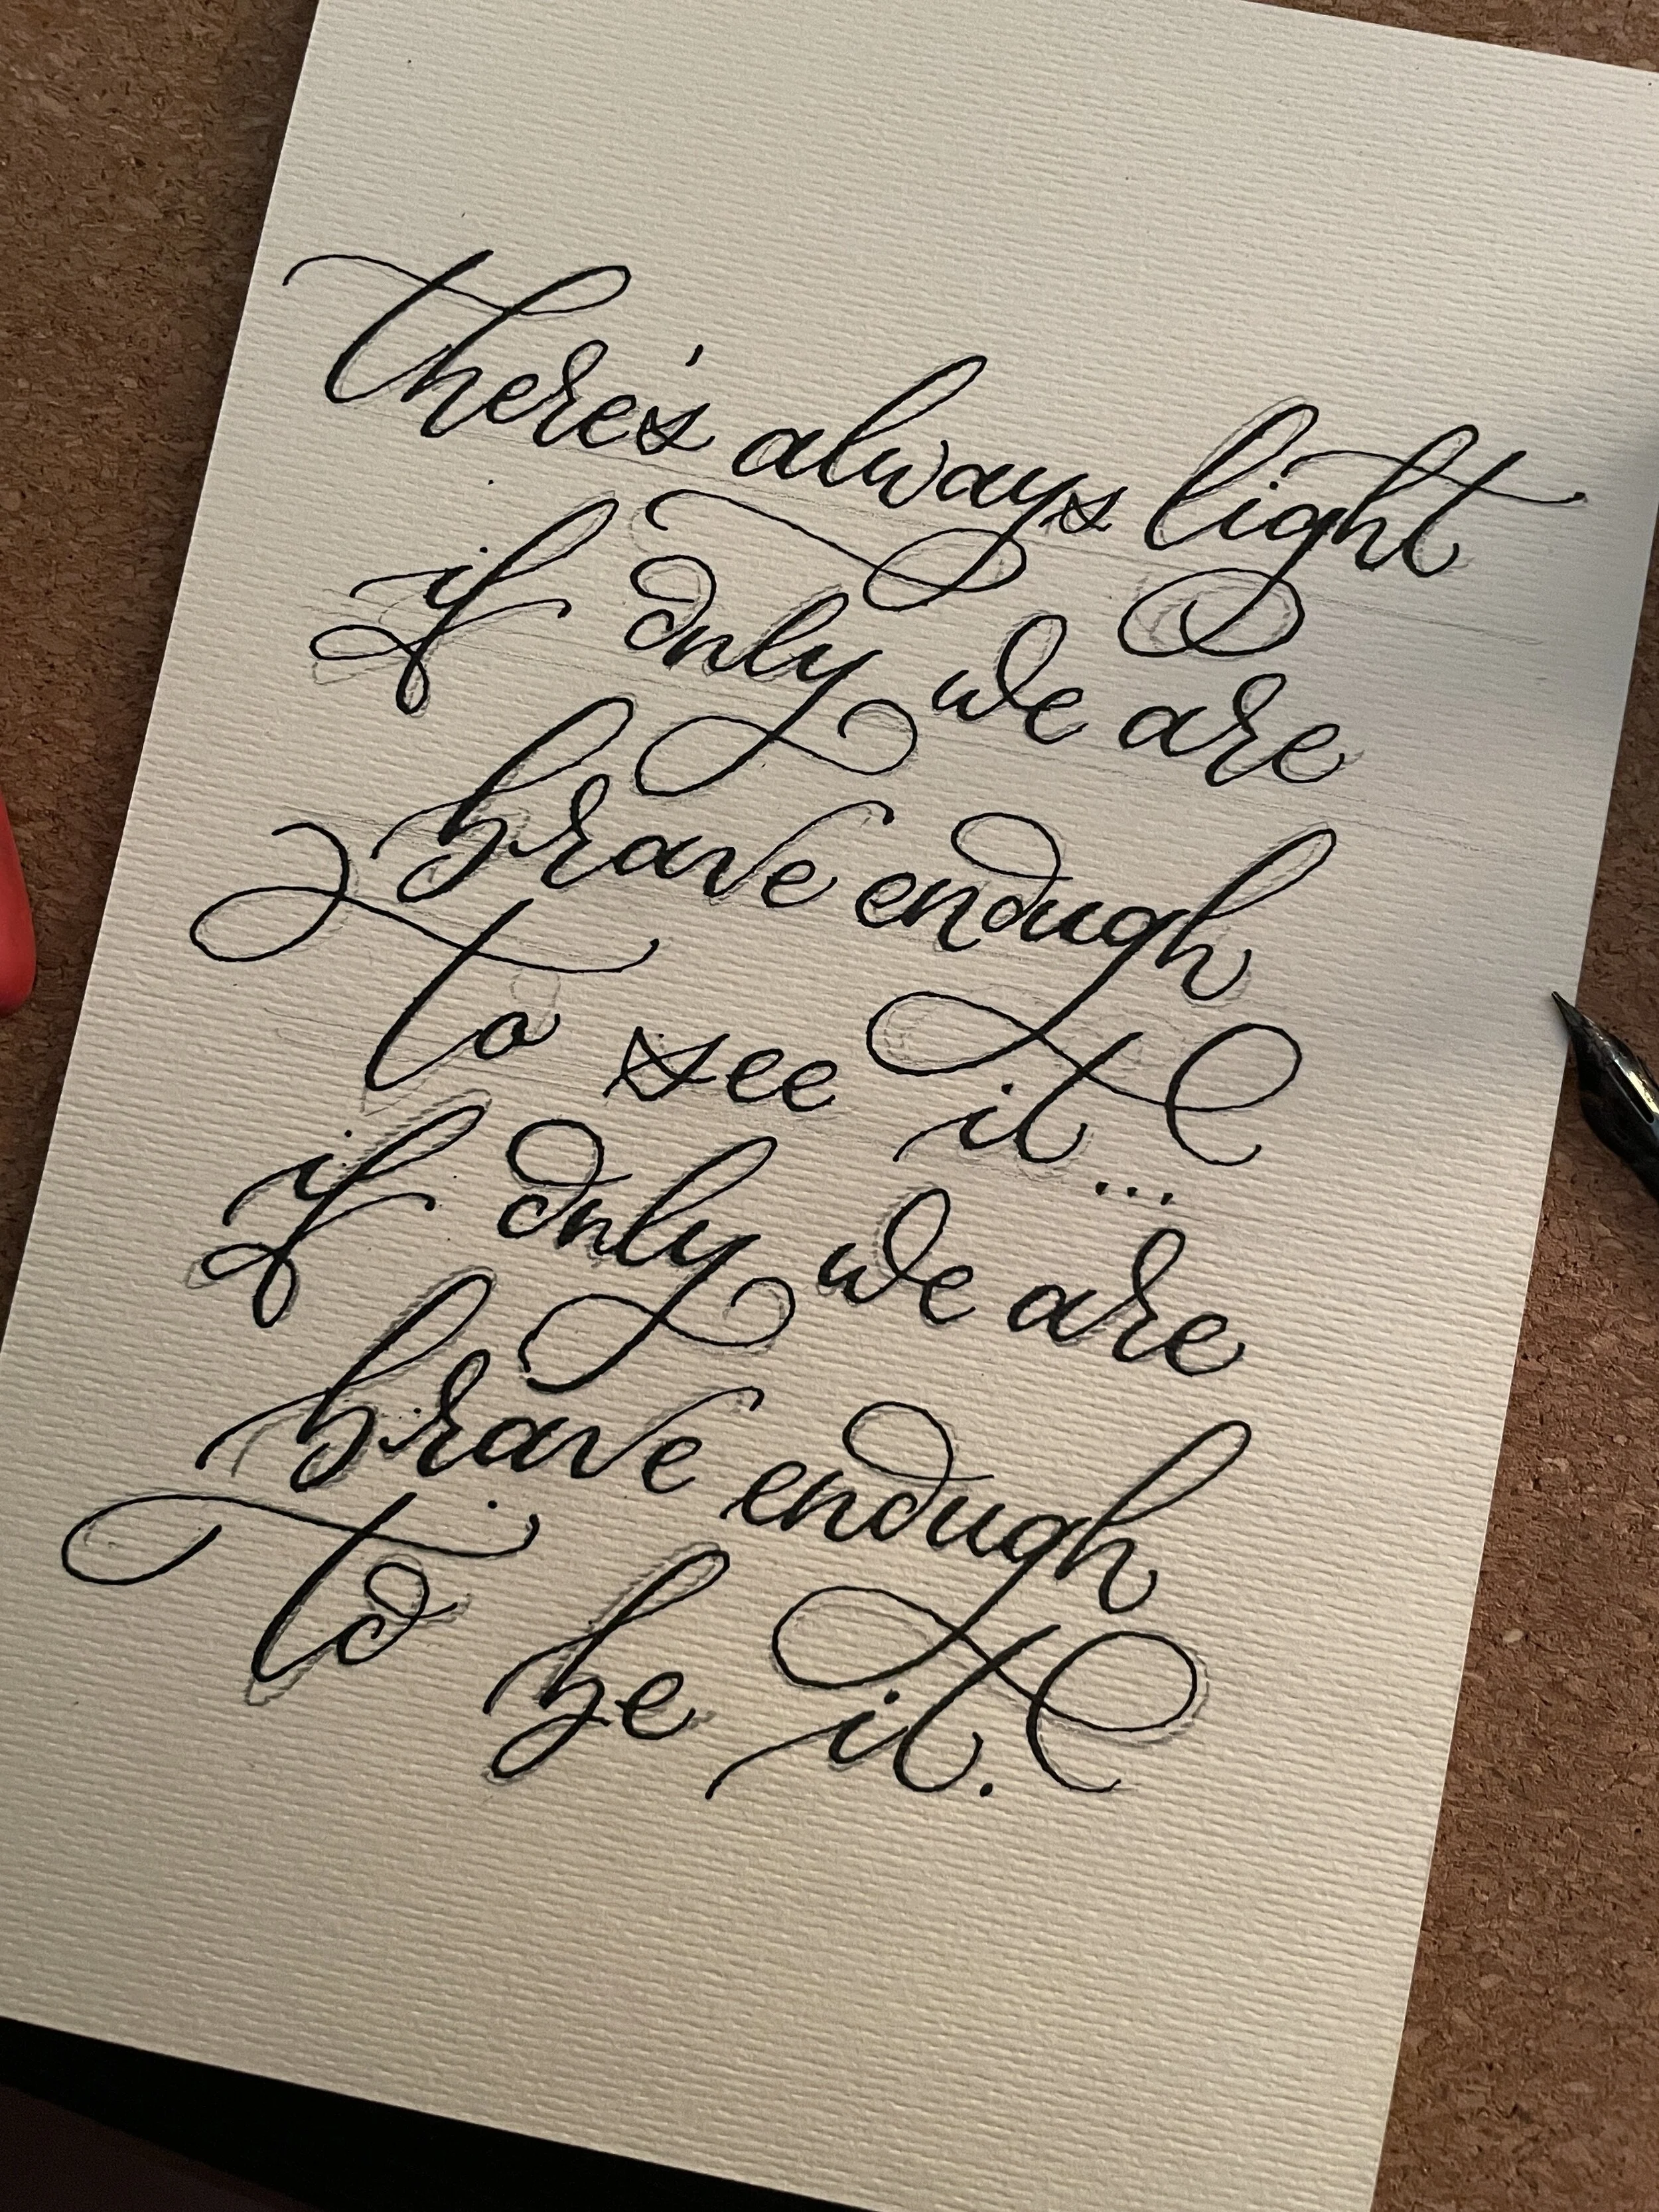 there's always light
if only we are
brave enough
to see it...
if only we are
brave enough
to be it.